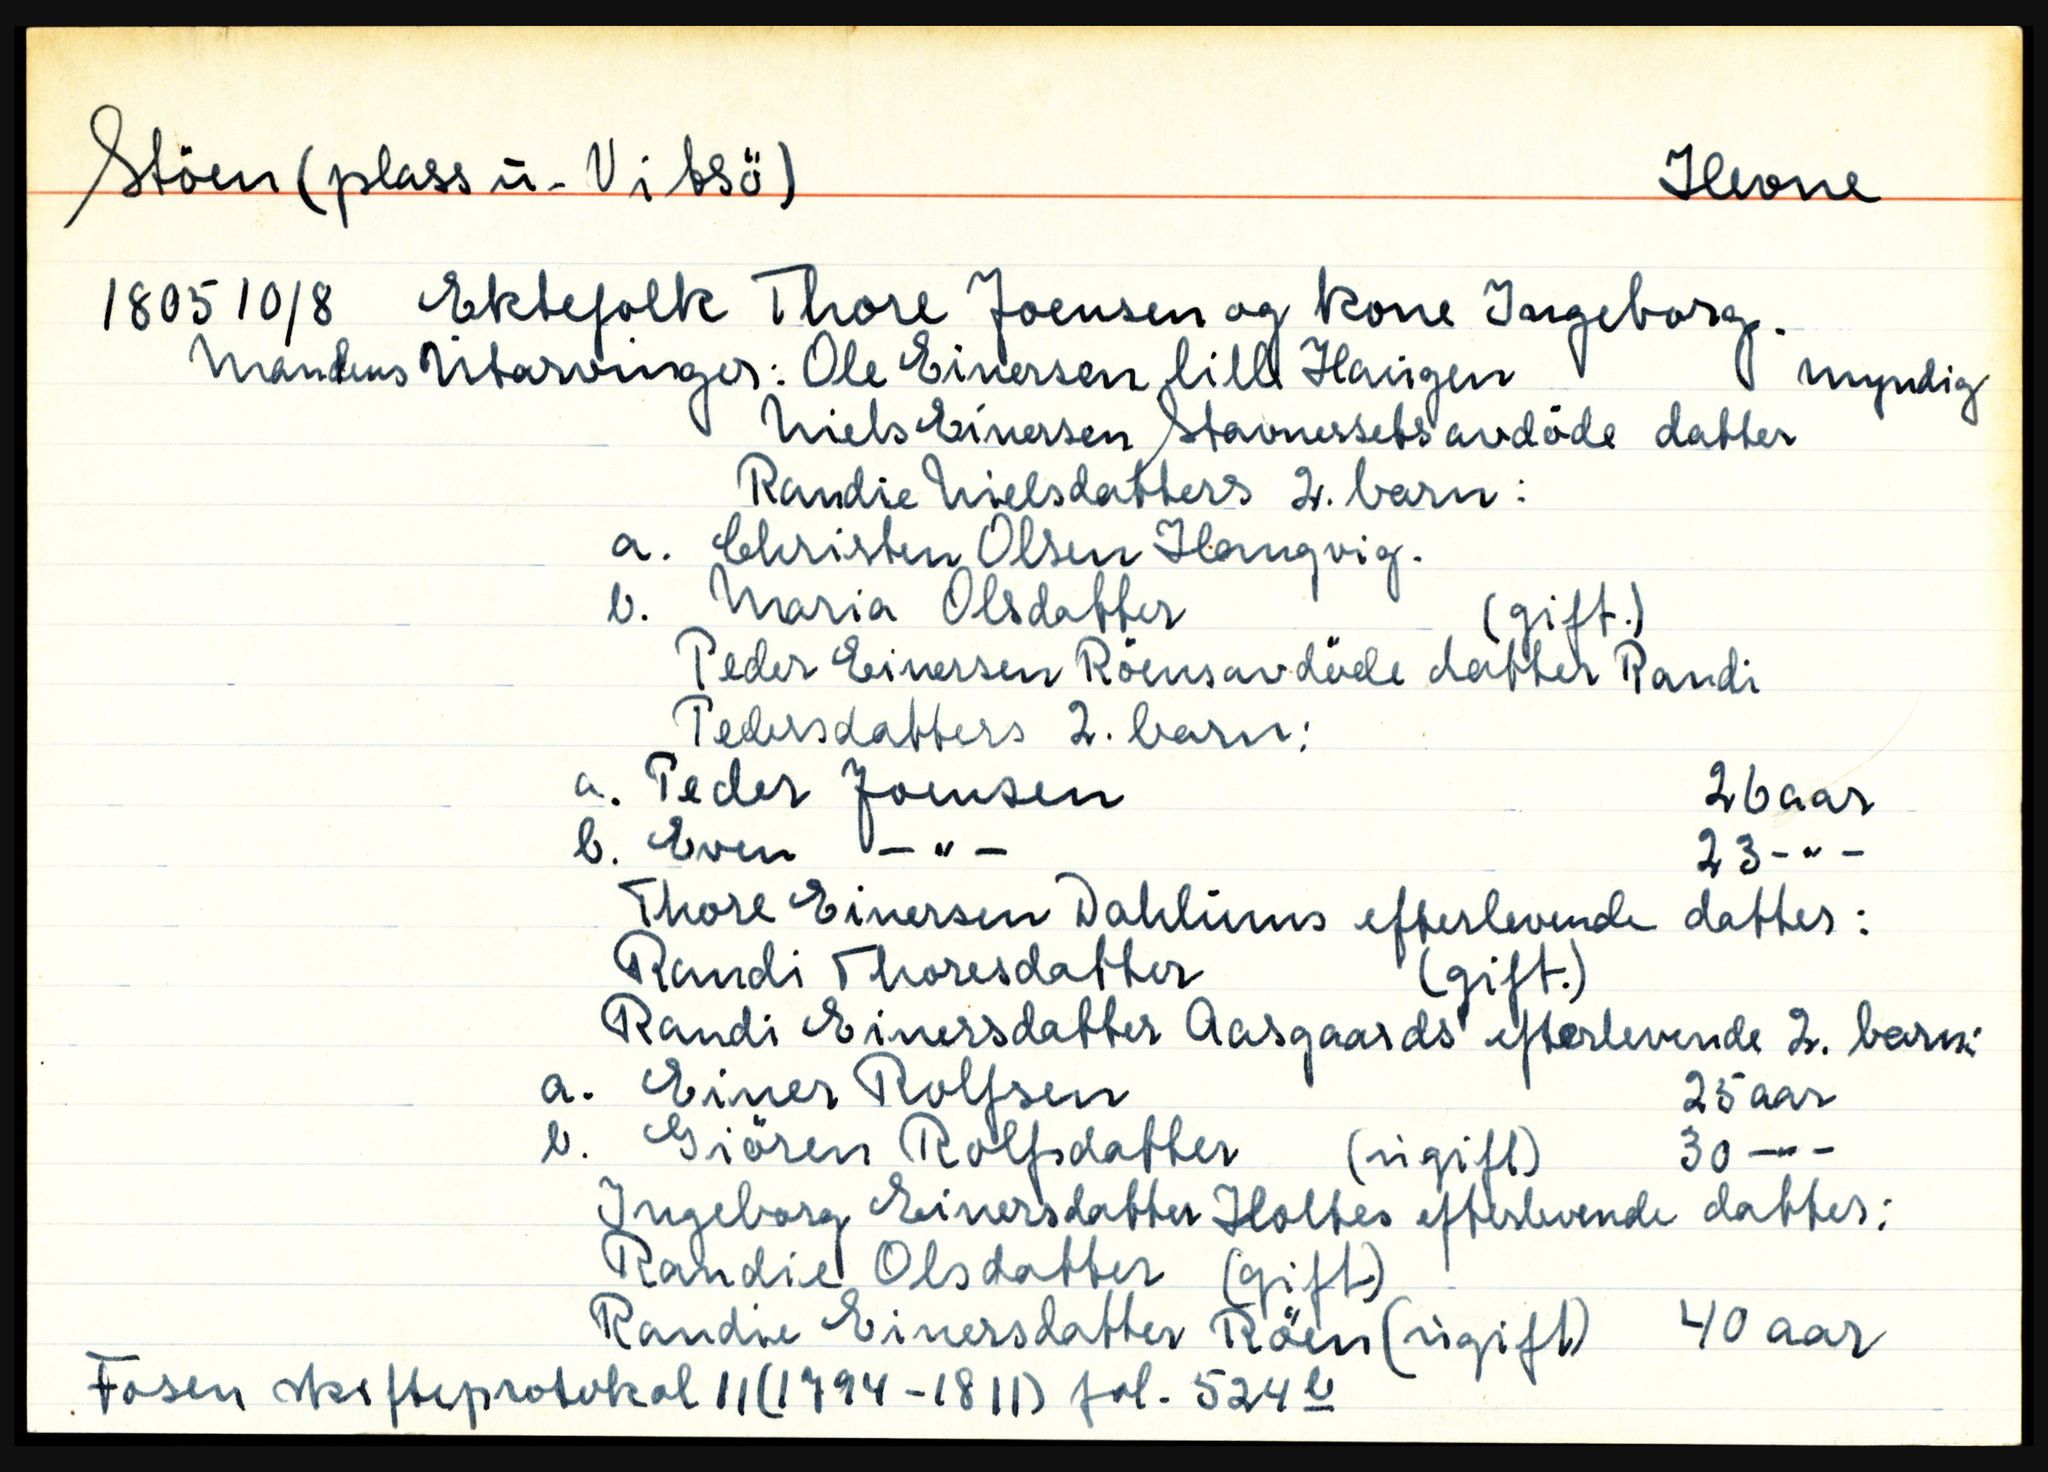 Stöen (plass ū. Vitsö) Hevne
1805 10/8 Ektefolk Thore Joensen og kone Ingeborg.
Mandens Utarvinger: Ole Einersen lill Haugen myndig
Niels Einersen Stavnessets avdöde datter
Randie Nielsdatters 2. barn:
a. Christen Olsen Hongvig.
b. Maria Olsdatter (gift.)
Peder Einersen Röens avdöde datter Randi
Pedersdatters 2. barn:
a. Peder Joensen 26 aar
b. Even -"- 23 -"-
Thore Einersen Dahlūms efterlevende datter:
Randi Thoresdatter (gift.)
Randi Einersdatter Aasgaards efterlevende 2. barn:
a. Einer Rolfsen 25 aar
b. Giören Rolfsdatter (ūgift) 30 -"-
Ingeborg Einersdatter Holtes efterlevende datter:
Randie Olsdatter (gift)
Randie Einersdatter Röen (ūgift) 40 aar
Fosen skifteprotokol 11 (1794-1811) fol. 524 b